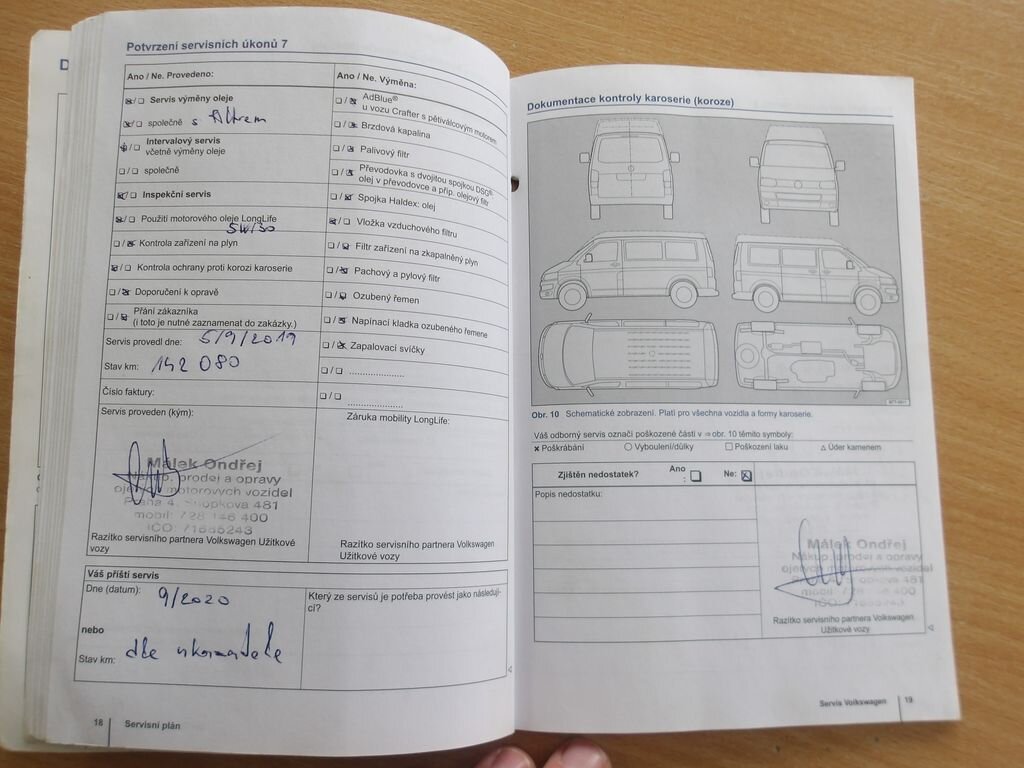 Potvrzení servisních úkonů 7
Ano / Ne. Provedeno:
Servis výměny oleje
společně s filtrem
Intervalový servis
včetně výměny oleje
společně
Inspekční servis
Použití motorového oleje LongLife
5W30
Kontrola zařízení na plyn
Kontrola ochrany proti korozi karoserie
Doporučení k opravě
Přání zákazníka
(i toto je nutné zaznamenat do zakázky.)
Servis provedl dne: 5/9/2019
Stav km: 142 080
Číslo faktury:
Servis proveden (kým):
Málek Ondřej
Nákup, prodej a opravy
ojetých motorových vozidel
Praha 4, 481
mobil: 728 146 400
IČO:
Razítko servisního partnera Volkswagen Užitkové
vozy
Ano / Ne. Výměna:
AdBlue®
u vozu Crafter s pětiválcovým motorem
Brzdová kapalina
Palivový filtr
Převodovka s dvojitou spojkou DSG®:
olej v převodovce a příp. olejový filtr
Spojka Haldex: olej
Vložka vzduchového filtru
Filtr zařízení na zkapalněný plyn
Pachový a pylový filtr
Ozubený řemen
Napínací kladka ozubeného řemene
Zapalovací svíčky
Záruka mobility LongLife:
Razítko servisního partnera Volkswagen
Užitkové vozy
Váš příští servis
Dne (datum): 9/2020
nebo
Stav km: dle ukazatele
Který ze servisů je potřeba provést jako následují-
cí?
18 Servisní plán
Dokumentace kontroly karoserie (koroze)
Obr. 10 Schematické zobrazení. Platí pro všechna vozidla a formy karoserie.
Váš odborný servis označí poškozené části v ⇒ obr. 10 těmito symboly:
× Poškrábání ○ Vyboulení/důlky □ Poškození laku △ Úder kamenem
Zjištěn nedostatek? Ano
: Ne:
Popis nedostatku:
Málek Ondřej
Nákup, prodej a opravy
ojetých motorových vozidel
481
mobil: 728 146 400
IČO:
Razítko servisního partnera Volkswagen
Užitkové vozy
Servis Volkswagen 19